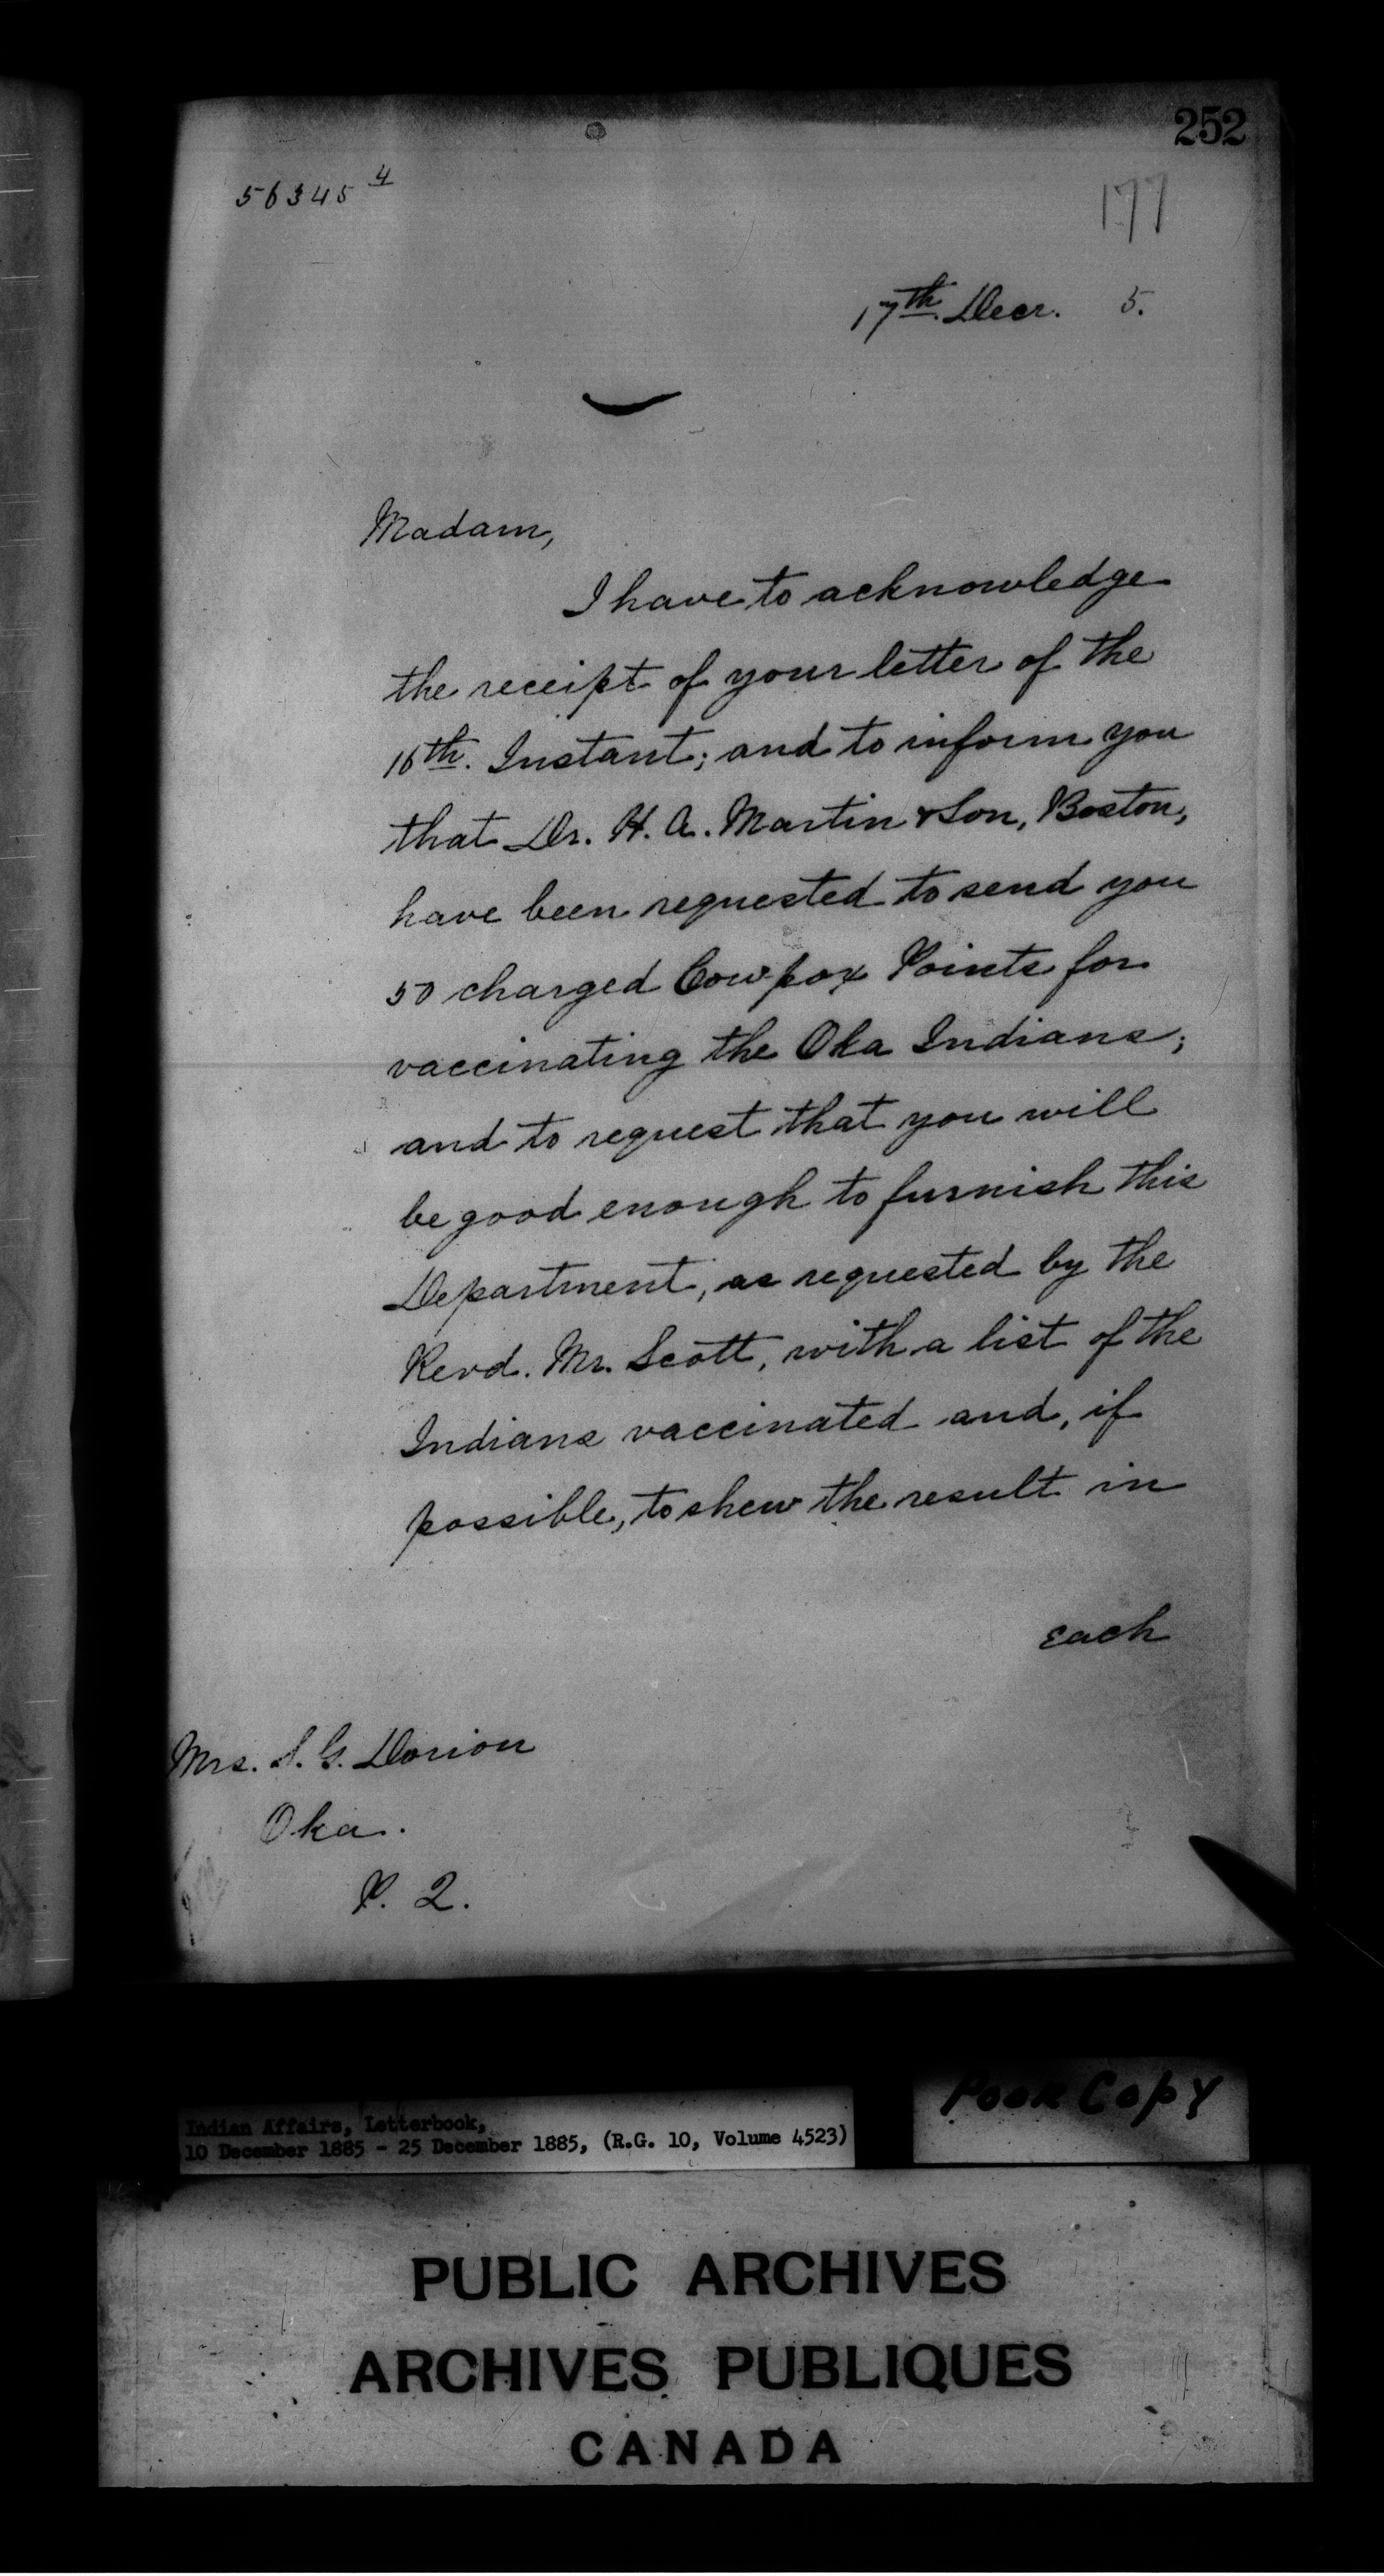 252
56345 4
177
17th. Decr. 5.
Madam,
I have to acknowledge
the receipt of your letter of the
16th. Instant; and to inform you
that Dr. H. A. Martin & Son, Boston,
have been requested to send you
50 charged Cowpox Points for
vaccinating the Oka Indians;
and to request that you will
be good enough to furnish this
Department, as requested by the
Revd. Mr. Scott, with a list of the
Indians vaccinated and, if
possible, to shew the result in
each
Mrs. S. G. Dorion
Oka.
P. Q.
Poor Copy
Indian Affairs, Letterbook,
10 December 1885 - 25 December 1885, (R.G. 10, Volume 4523)
PUBLIC ARCHIVES
ARCHIVES PUBLIQUES
CANADA